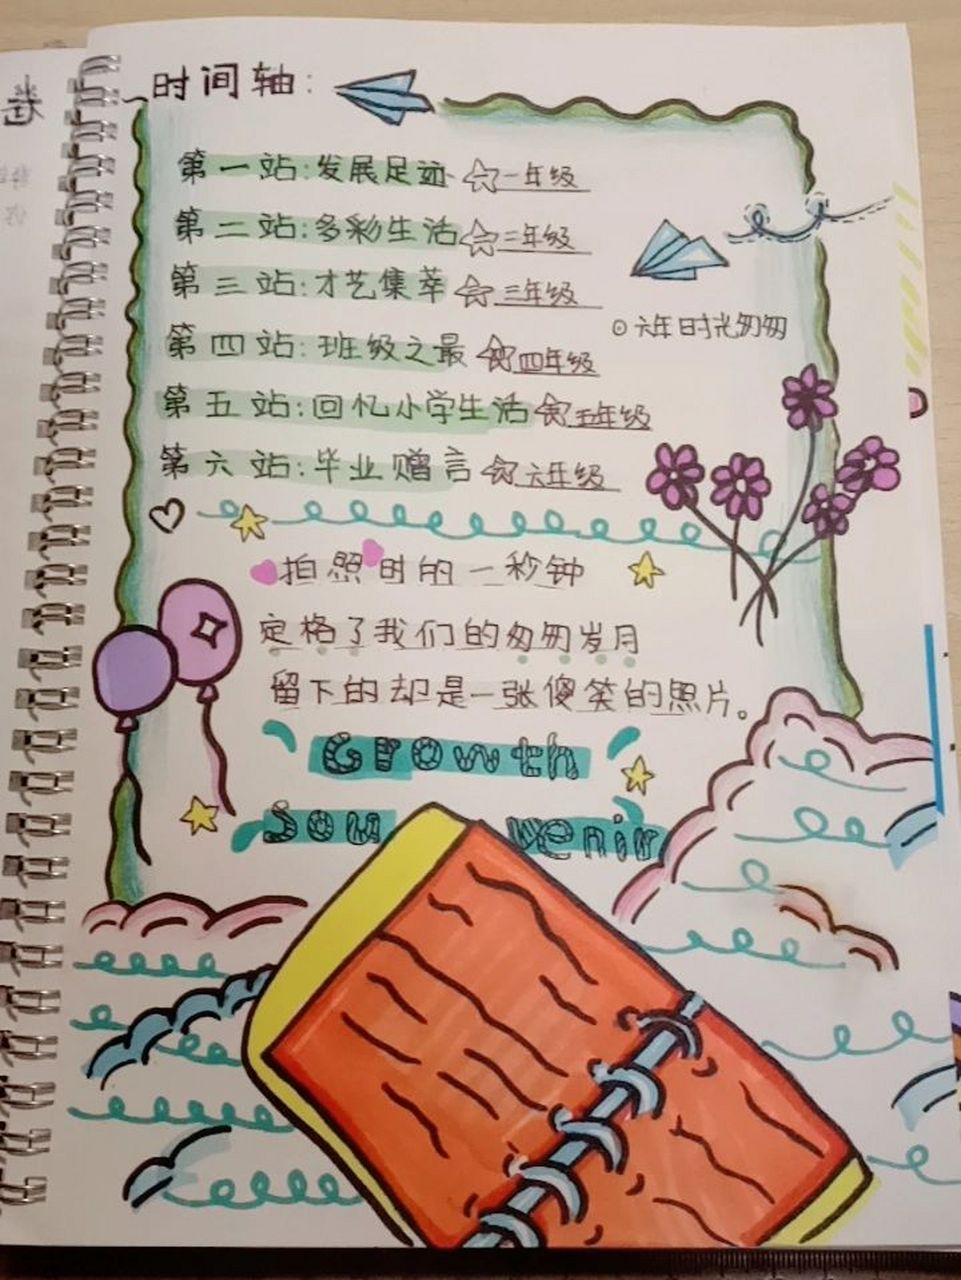 时间轴:
第一站:发展足迹 一年级
第二站:多彩生活 二年级
第三站:才艺集萃 三年级
六年时光匆匆
第四站:班级之最 四年级
第五站:回忆小学生活 五年级
第六站:毕业赠言 六年级
拍照时的一秒钟
定格了我们的匆匆岁月
留下的却是一张傻笑的照片。
Growth
Souvenir